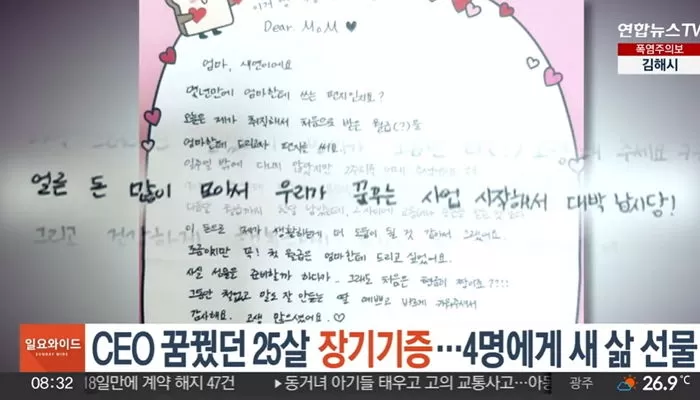 Dear MoM ♥
연합뉴스TV
폭염주의보
김해시
엄마, 새연이에요
몇년만에 엄마한테 쓰는 편지인지요?
오늘은 제가 취직해서 처음으로 받은 월급(?)을
엄마한테 드리고자 편지를 써요.
일주일 밖에 다니지 않았지만
얼른 돈 많이 모아서 우리가 꿈꾸는 사업 시작해서 대박 납시당!
이 돈으로 제가 생활하는게 더 도움이 될 것 같아서
조금이지만 꼭! 첫 월급은 엄마한테 드리고 싶었어요.
사실 선물을 준비할까 하다가.. 그래도 처음은 현금이 짱이죠????
그동안 철없고 말도 잘 안듣는 딸 예쁘고 바르게 키워주셔서
감사해요. 고생 많으셨어요.♡
일요와이드
SUNDAY WIDE
CEO 꿈꿨던 25살 장기기증…4명에게 새 삶 선물
08:32
18일만에 계약 해지 47건 ▶동거녀 아기들 태우고 고의 교통사고…아동
광주
26.9℃